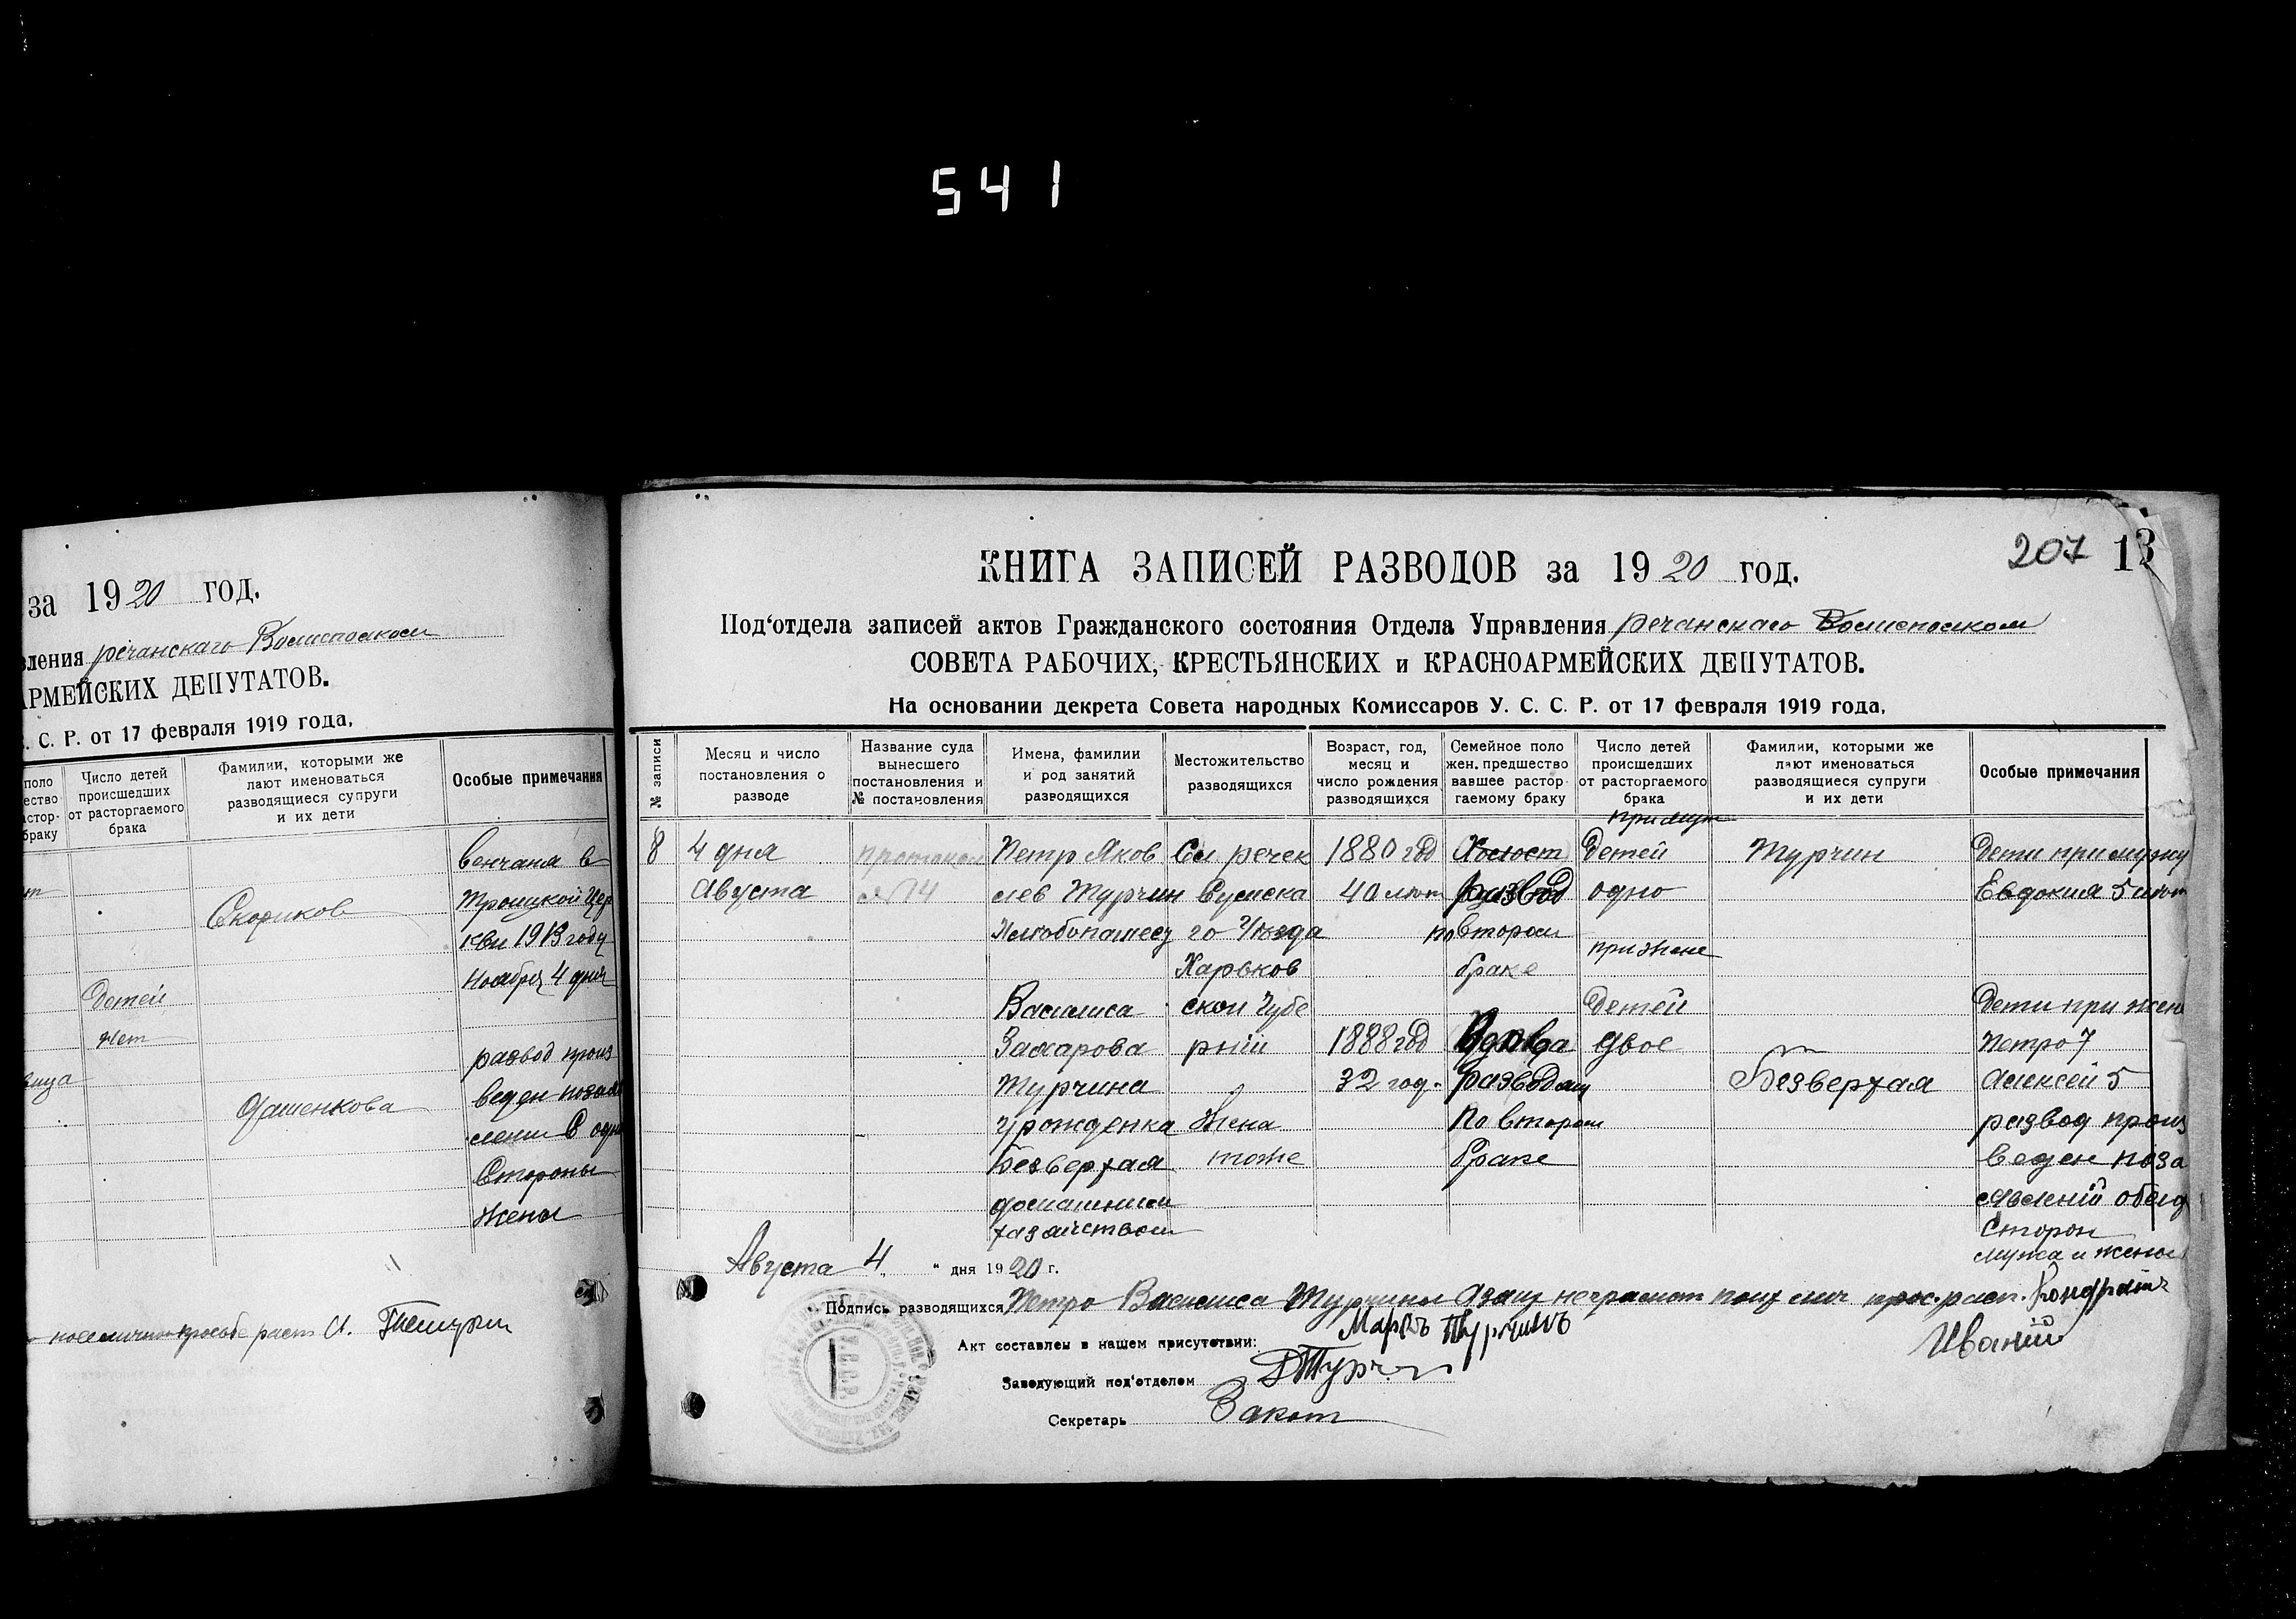 541
за 1920 год.
вления речанскаго Волисполком
АРМЕЙСКИХ ДЕПУТАТОВ.
. С. Р. от 17 февраля 1919 года,
поло
ество
астор-
браку
Число детей
происшедших
от расторгаемого
брака
Фамилии, которыми же
лают именоваться
разводящиеся супруги
и их дети
Особые примечания
Детей
нет
Скориков
Дашенкова
венчаня в
Троицкой цер
кви 1913 году
Ноября 4 дня
развод произ
веден
Стороны
Жены
просьбе расп И.
207 13
КНИГА ЗАПИСЕЙ РАЗВОДОВ за 1920 год.
Под‘отдела записей актов Гражданского состояния Отдела Управления речанскаго Волисполком
СОВЕТА РАБОЧИХ, КРЕСТЬЯНСКИХ и КРАСНОАРМЕЙСКИХ ДЕПУТАТОВ.
На основании декрета Совета народных Комиссаров У. С. С. Р. от 17 февраля 1919 года,
№ записи
Месяц и число
постановления о
разводе
Название суда
вынесшего
постановления и
№ постановления
Имена, фамилии
и род занятий
разводящихся
Местожительство
разводящихся
Возраст, год,
месяц и
число рождения
разводящихся
Семейное поло
жен. предшество
вавшее растор-
гаемому браку
Число детей
происшедших
от расторгаемого
брака
Фамилии, которыми же
лают именоваться
разводящиеся супруги
и их дети
Особые примечания
8
4 дня
Августа
протокол
№ 14
Петр Яков
лев Турчин
Хлебопашец
Василиса
Захарова
Турчина
урожденка
Безверхая
домашним
хазайством
Сл речек
Сумска
го Уезда
Харьков
ской Губе
рніи
Жена
тоже
1880 год
40 лет
1888 год
32 год.
Холост
развод
по втором
браке
Вдова
развод
По втором
браке
при муж
Детей
одно
при жене
Детей
двое
Турчин
Безверхая
Дети при мужу
Евдокия 5 лет
Дети при жене
Петро 7
Алексей 5
развод произ
веден поза
явленій обеих
Сторон
мужа и жены
Августа 4 „ дня 1920 г.
Подпись разводящихся Петро Василиса Турчины неграмот прос. расп. Кондрат
Иваній
Акт составлен в нашем присутствии: Марко Турчинъ
Заведующий под‘отделом
Секретарь